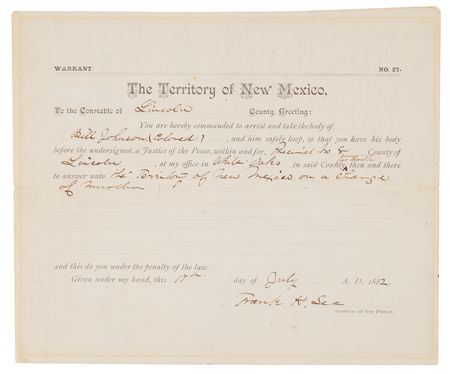 WARRANT. NO. 27.
The Territory of New Mexico,
To the Constable of Lincoln County, Greeting:
You are hereby commanded to arrest and take the body of
Bill Johnson (Colored), and him safely keep, so that you have his body
before the undersigned, a Justice of the Peace, within and for Precinct No 8 County of
Lincoln, at my office in White Oaks in said County forthwith then and there
to answer unto The Territory of New Mexico on a Charge
of Murder
and this do you under the penalty of the law.
Given under my hand, this 17th day of July A. D. 1882
Frank H. Lea
Justice of the Peace.